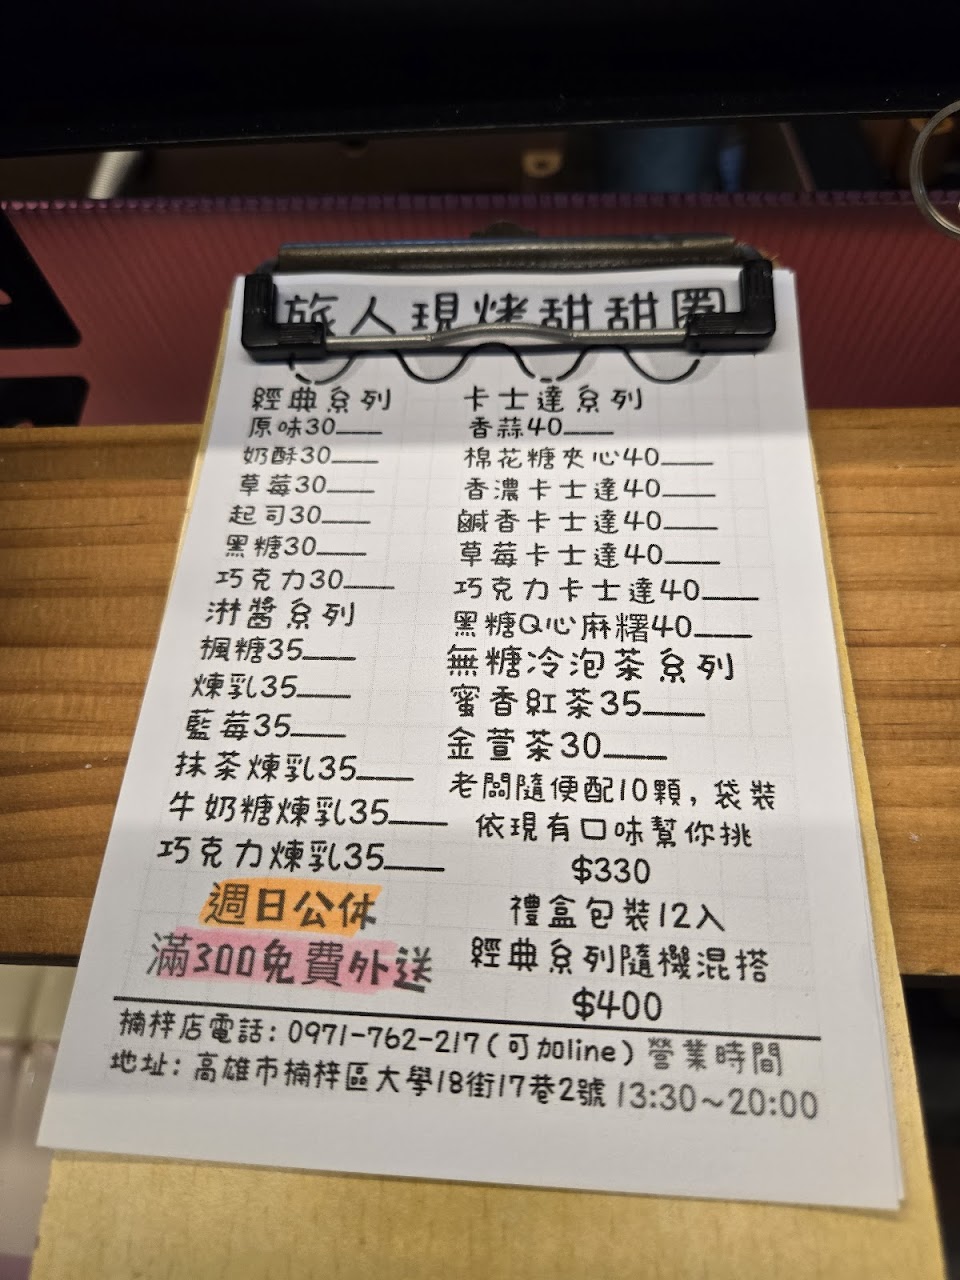 旅人現烤甜甜圈
經典系列
原味30___
奶酥30___
草莓30___
起司30___
黑糖30___
巧克力30___
淋醬系列
楓糖35___
煉乳35___
藍莓35___
抹茶煉乳35___
牛奶糖煉乳35___
巧克力煉乳35___
週日公休
滿300免費外送
卡士達系列
香蒜40___
棉花糖夾心40___
香濃卡士達40___
鹹香卡士達40___
草莓卡士達40___
巧克力卡士達40___
黑糖Q心麻糬40___
無糖冷泡茶系列
蜜香紅茶35___
金萱茶30___
老闆隨便配10顆，袋裝
依現有口味幫你挑
$330
禮盒包裝12入
經典系列隨機混搭
$400
楠梓店電話：0971-762-217(可加line) 營業時間
地址：高雄市楠梓區大學18街17巷2號 13:30~20:00